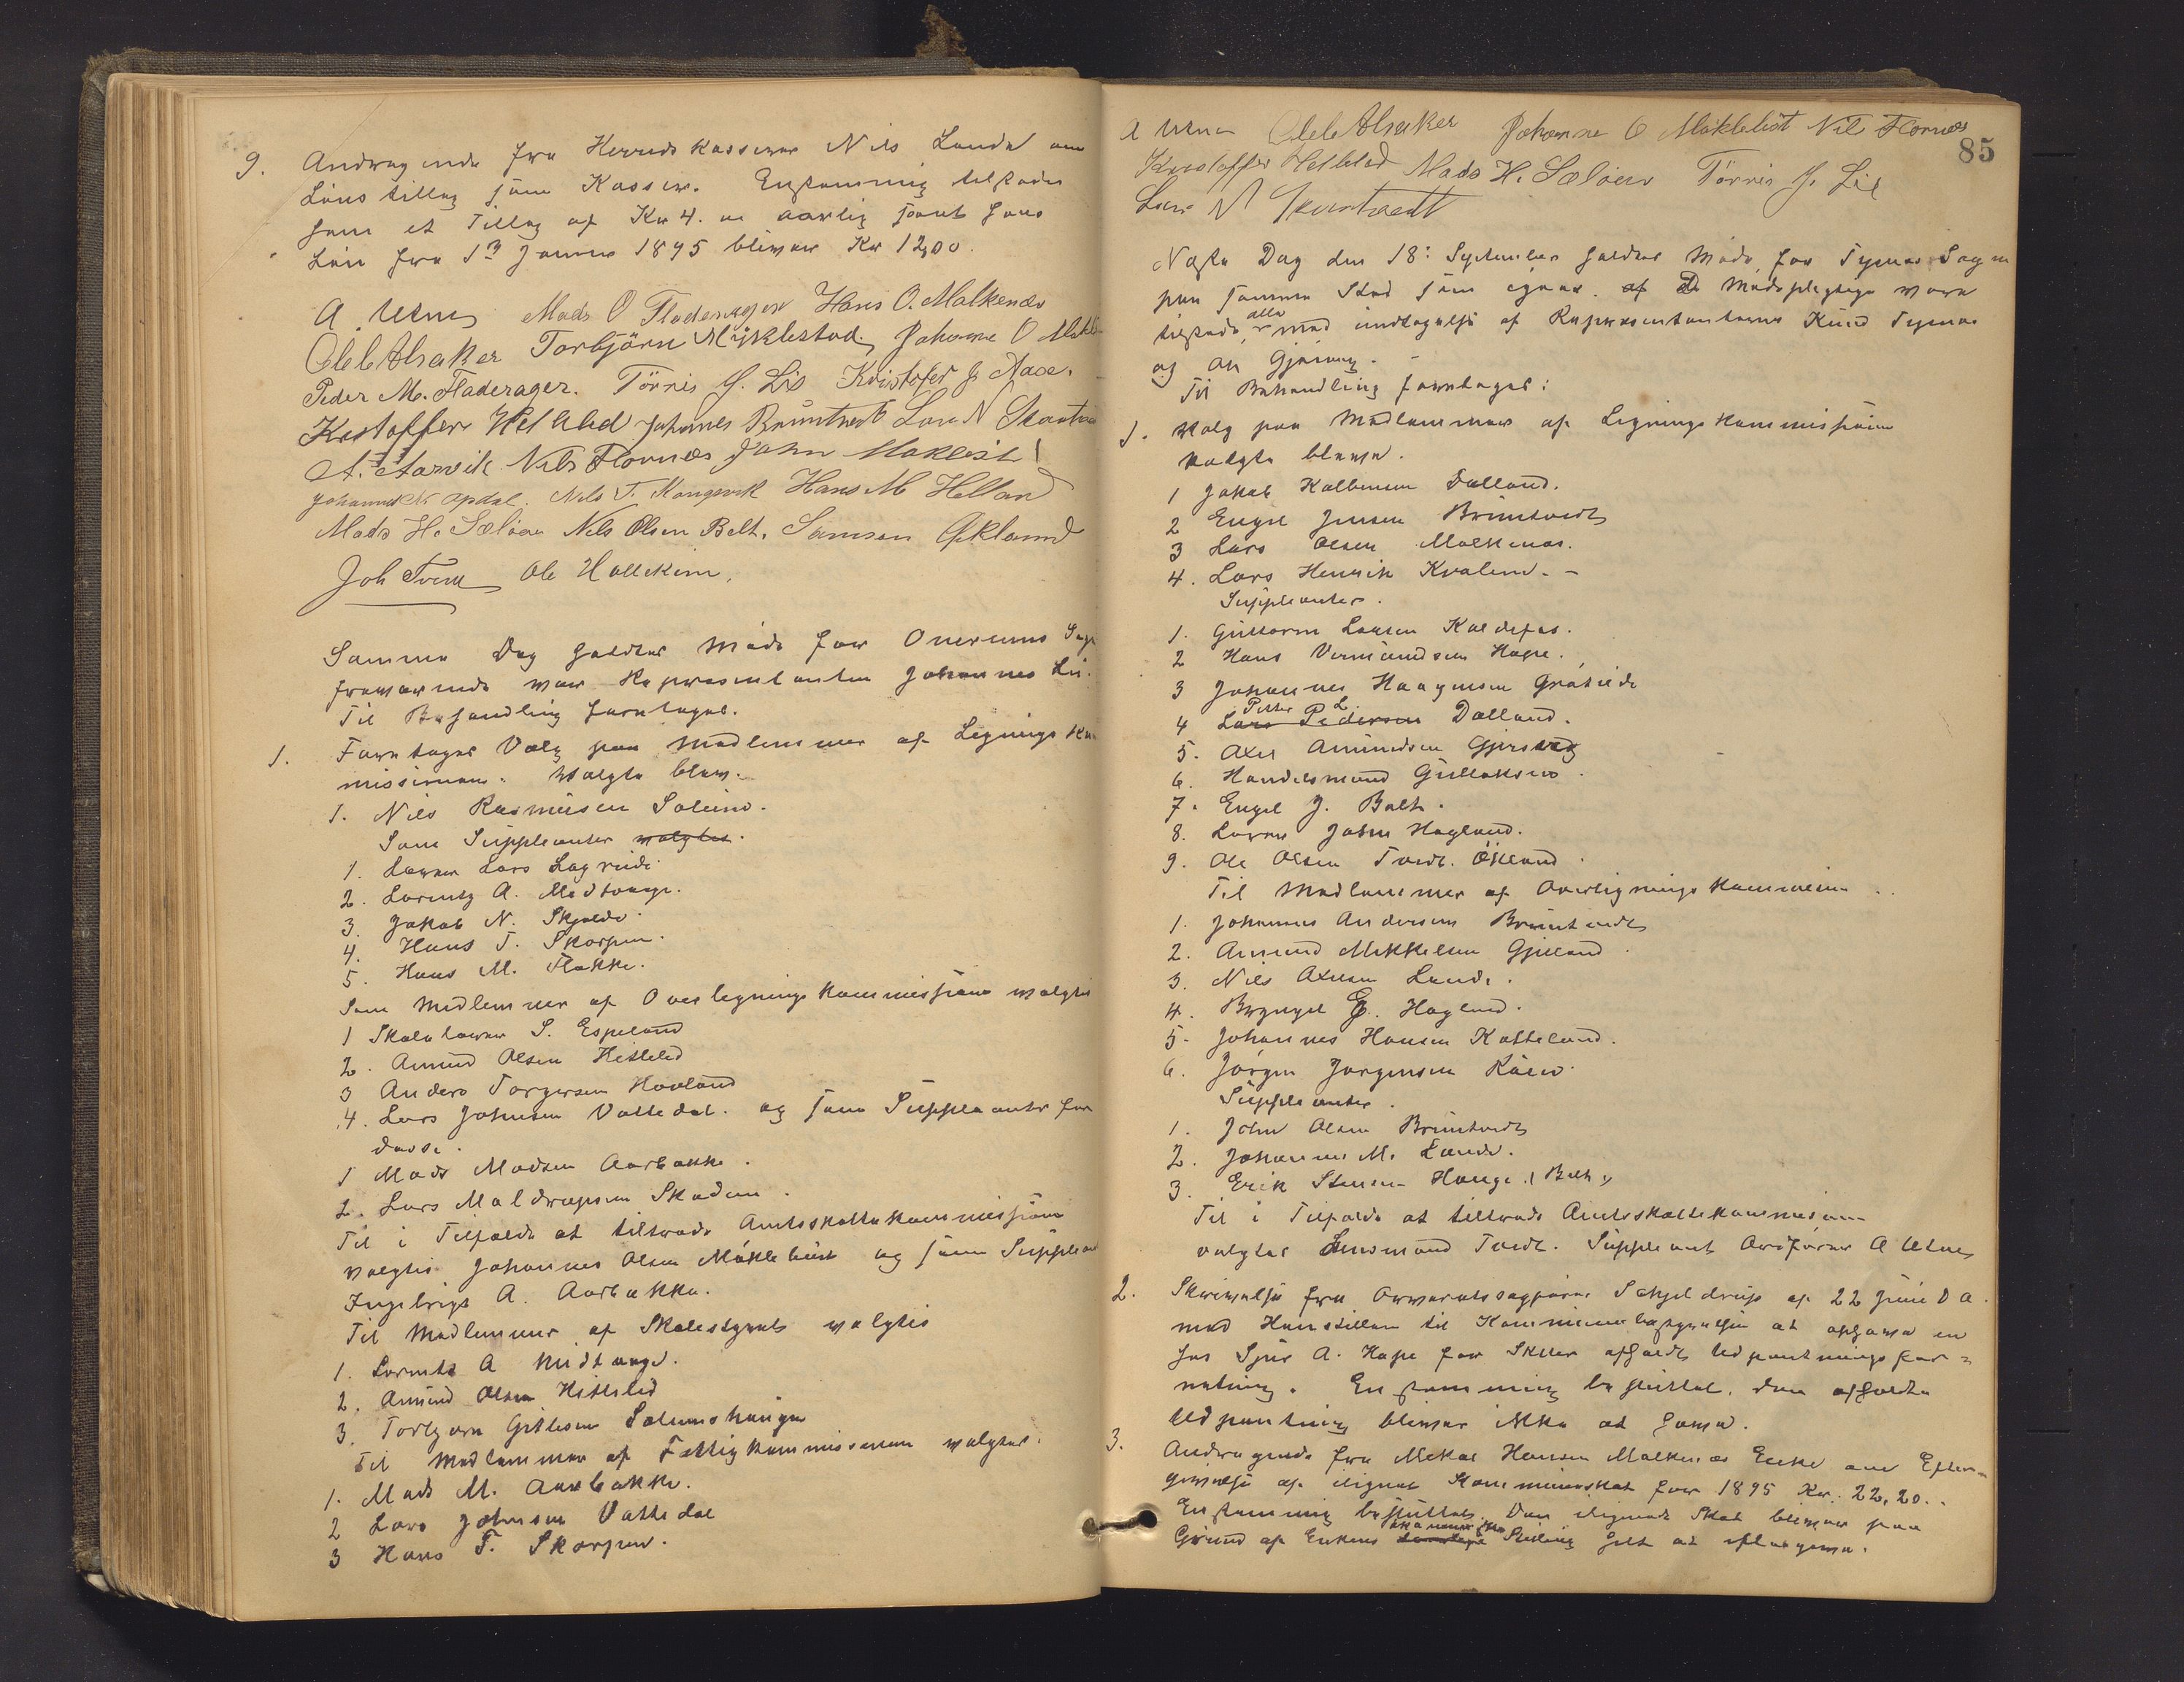 9. Andragende fra Herredskasserer Nils Landa om
Lønstillæg som Kasserer. Enstemmig tilstodes
ham et Tillæg af Kr 4. aarlig saant hans
Løn fra 1ste Januar 1895 bliver Kr 1200.
A Utne Mads O Fladerager Hans O. Malkenæs
Ole Torbjørn Mÿklestad. Johanne O
Peder M. Fladerager. Törris J. Lie Kristofer J. Aase.
Kristoffer Helleled Johannes Bruntvedt Lars N
A. Aarvik Nils Flornes John
Johannes N. Opdal. Nils T. Kongsvik Hans M Helland
Mads H. Sæløen Nils Olsen Belt. Samson Økland
Joh Tvedt Ole Hallekim.
Samme Dag holdtes Møde for Onereims Sogn
fraværende var Repræsentanten Johannes Lie.
Til Behandling foretoges.
1. Foretoges Valg paa Medlemmer af Lignings Kom
missionen. Valgte blev.
1. Nils Rasmusen Soleim.
Som Suppleanter valgtes.
1. Lærer Lars Lagreide
2. Lorentz A. Medhauge.
3. Jakob N. Skjolde
4. Hans T. Skorpen.
5. Hans M. Flakke.
Som Medlemmer af Overlignings Kommissionen valgtes
1 Skolelærer S. Espeland
2. Amund Olsen Hetleled
3 Anders Torgersen Hovland
4. Lars Johnsen Vattedal. og som Suppleanter for
disse.
1 Mads Madsen Aarbakke.
2. Lars Maldvapsen Skaden.
Til i Tilfælde at tiltræde Amtsskattekommissionen
valgtes Johannes Olsen Møklebust og som Suppleant
Ingebrigt A. Aarbakke.
Til Medlemmer af Skolestyret valgtes
1. Lorents A Midhauge.
2. Amund Olsen Hetleled
3. Torbjørn Gitlesen Solemshaugen
Til Medlemmer af Fattigkommissionen valgtes.
1. Mads M. Aarbakke.
2 Lars Johnsen Vattedal
3 Hans T. Skorpen.
85
A Utne Ole Johanne O Møklebst Nils Flornes
Kristoffer Helleled Mads H. Sæløen Törris J. Lie
Lars N
Næste Dag den 18: September holdtes Møde for Tysnes Sogn
paa samme Sted som igaar. af De Mødepligtige vare
tilstede alle med undtagelse af Repræsentanterne Knud Tysnes
og
Til Behandling foretoges:
1. Valg paa Medlemmer af Ligningskommissionen
Valgte bleve.
1 Jakob Kolbensen Dalland.
2 Engel Jensen Bruntvedt
3 Lars Olsen Malkenæs.
4. Lars Henrik Kvalem. -
Suppleanter.
1. Guttorm Larsen Kaldefos.
2 Hans Vermundsen Hope.
3 Johannes Haagensen Graheide
4 Lars Pedersen Petter L. Dalland.
5. Axel Amundsen Gjersvig
6. Handelsmand Gullaksen.
7. Engel J. Belt.
8. Lærer John Hagland.
9. Ole Olsen Tvedt. Økland.
Til Medlemmer af Overligningskommissionen
1. Johannes Andersen Bruntvedt
2. Amund Mikkelsen Gjøvand
3. Nils Axelsen Lunde.
4. Brynjel E. Hagland.
5. Johannes Hansen Katteland.
6. Jørgen Jørgensen Röen.
Suppleanter.
1. John Olsen Bruntvedt
2. Johannes M. Lunde.
3. Erik Stensen Hauge. (Belt)
Til i Tilfælde at tiltræde Amtsskattekommissionen
valgtes Lensmand Tvedt. Suppleant Ordfører A Utne
2. Skrivelse fra Overretssagfører Schjelderup af 22 Juni D A.
med Henstillen til Kommunebestyrelsen at ophæve en
hos Sjur A. Hope for Skatter afholdt Udpantningsfor=
retning. Enstemmig besluttet. Den afholdte
Udpantning bliver ikke at hæve.
3. Andragende fra Mikal Hansen Malkenæs Enke om Efter-
givelse af ilignet Kommuneskat for 1895 Kr. 22,20.
Enstemmig besluttet. Den ilignede Skat bliver paa
Grund af Enkens økonomiske Stilling helt at eftergive.